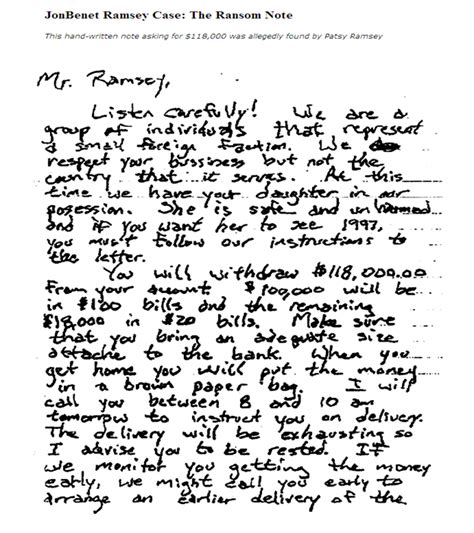 JonBenet Ramsey Case: The Ransom Note
This hand-written note asking for $118,000 was allegedly found by Patsy Ramsey
Mr. Ramsey,
Listen carefully! We are a
group of individuals that represent
a small foreign faction. We do
respect your bussiness but not the
country that it serves. At this
time we have your daughter in our
posession. She is safe and unharmed
and if you want her to see 1997,
you must follow our instructions to
the letter.
You will withdraw $118,000.00
from your account. $100,000 will be
in $100 bills and the remaining
$18,000 in $20 bills. Make sure
that you bring an adequate size
attache to the bank. When you
get home you will put the money
in a brown paper bag. I will
call you between 8 and 10 am
tomorrow to instruct you on delivery.
The delivery will be exhausting so
I advise you to be rested. If
we monitor you getting the money
early, we might call you early to
arrange an earlier delivery of the